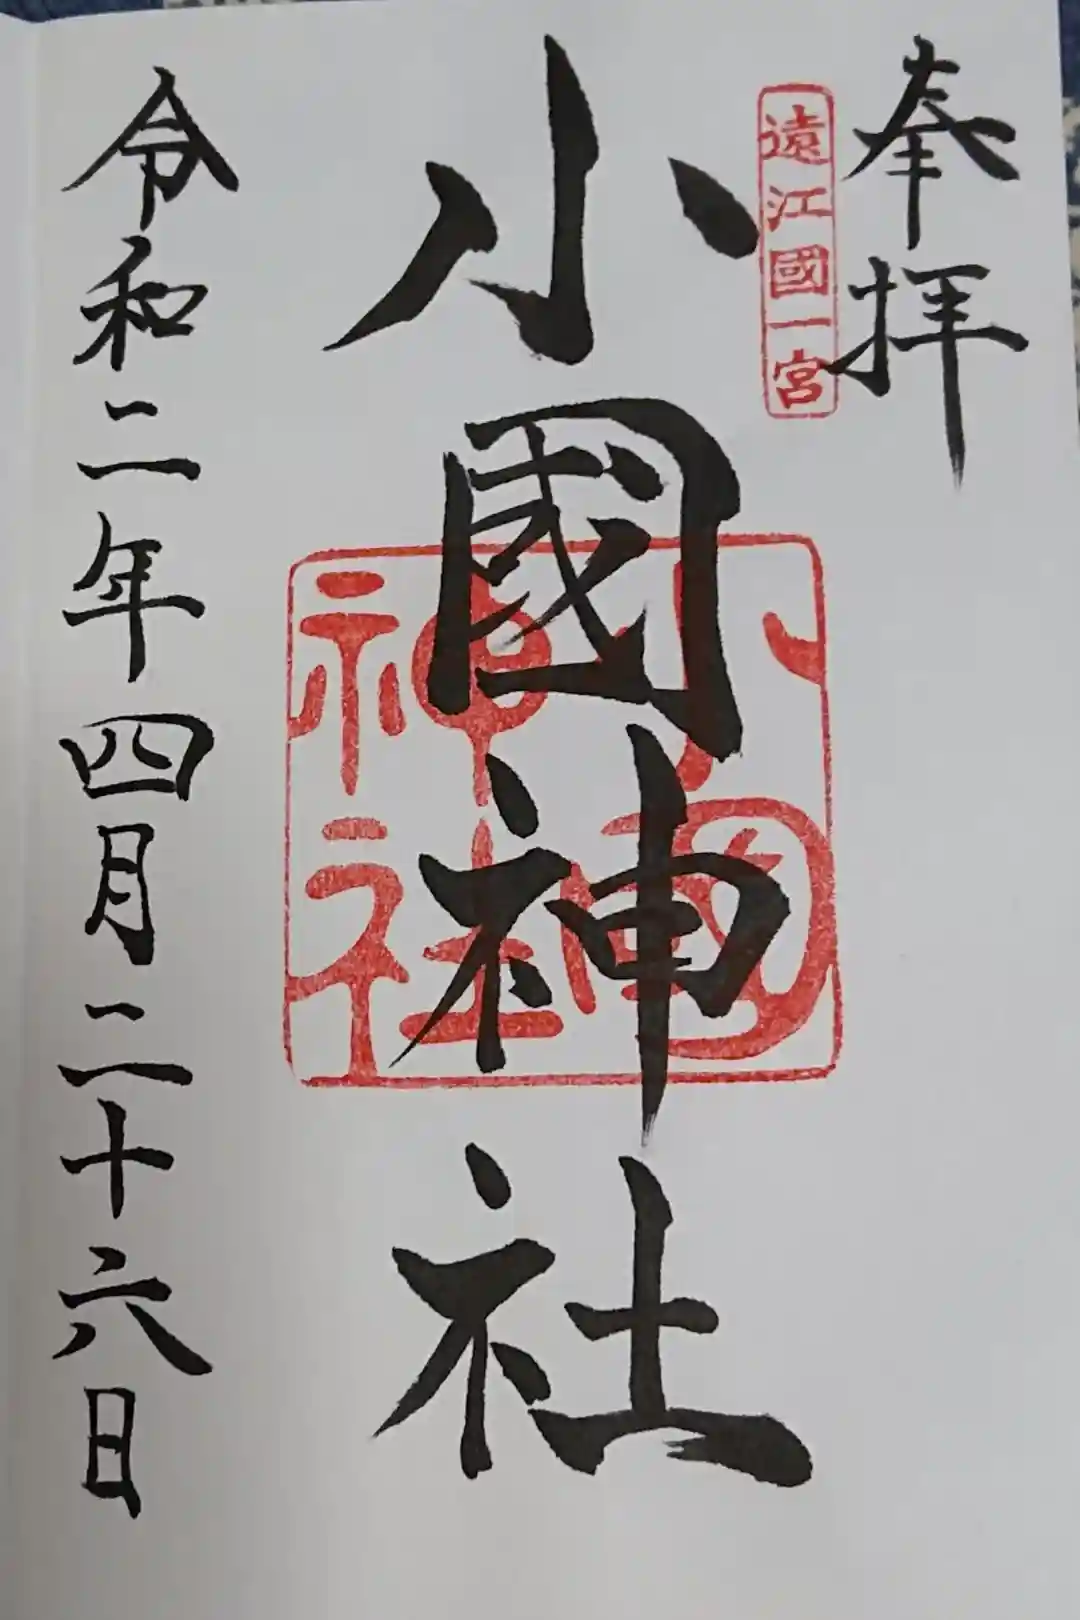 奉拝
遠江國一宮
小國神社
小國神社
令和二年四月二十六日